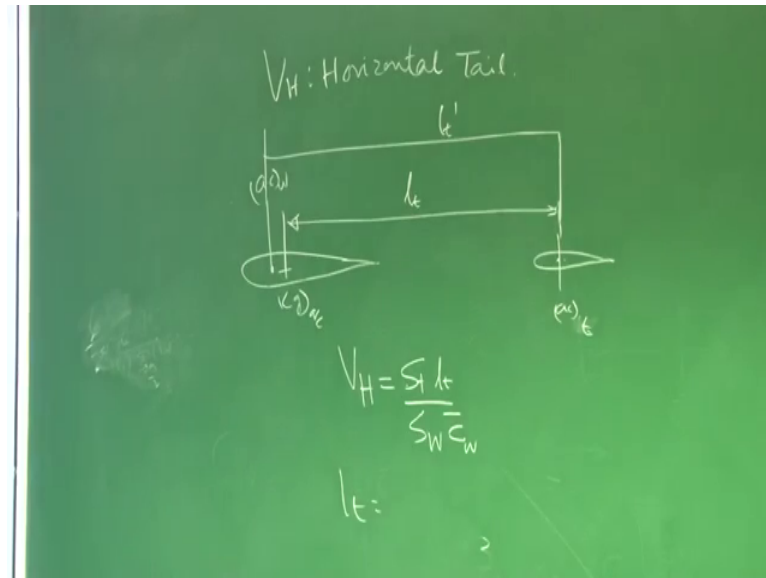 V_H: Horizontal Tail.
l_t'
(ac)_w
l_t
(cg)_a/c
(ac)_t
V_H = S_t l_t / S_W c̄_w
l_t =